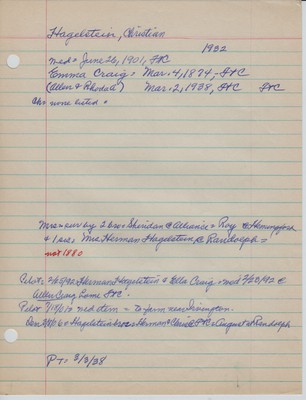 Hagelstein, Christian
1932
med = June 26, 1901, FtC
Emma Craig = Mar. 4, 1874, FtC
(Allen & Rhoda) Mar. 2, 1938, FtC FtC
Ch = none listed =
Mrs = surv by 2 bros Sheridan @ Alliance = Roy @ Hemingford
& 1 sis Mrs Herman Hagelstein @ Randolph =
not 1880
Herman Hagelstein & Ella Craig = med
Allen Craig home FtC.
med = to farm near Irvington.
Hagelstein bros Herman & August @ Randolph
PT = 3/3/38